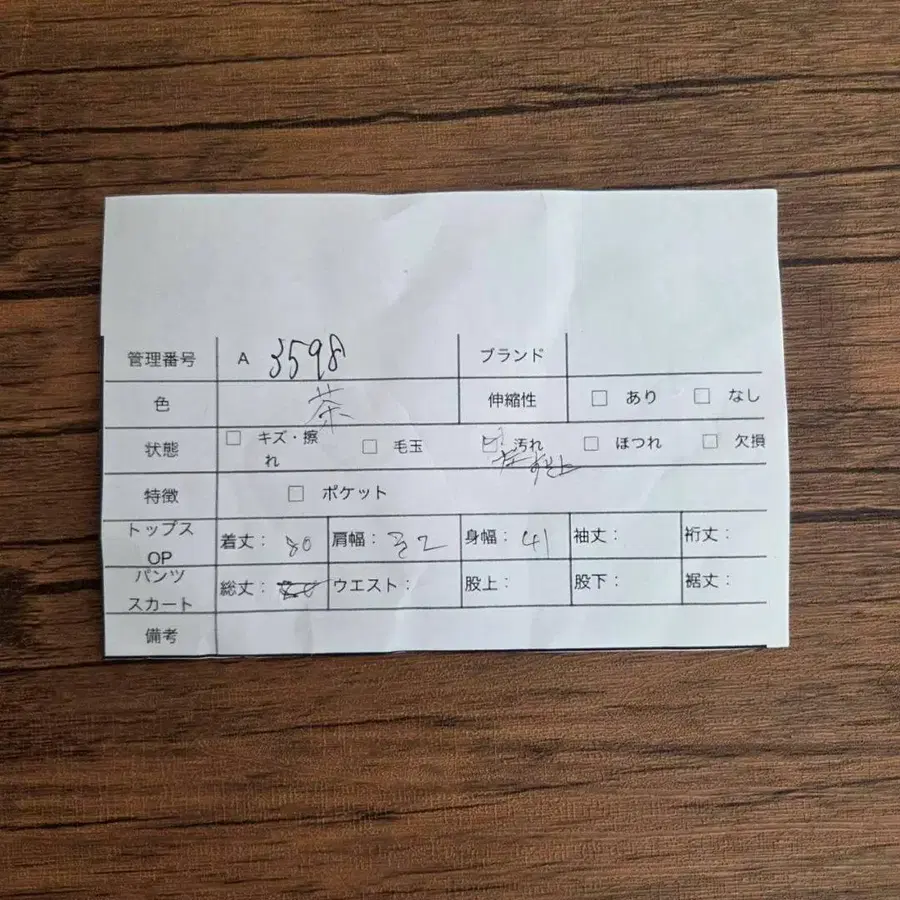 管理番号 A 3598 ブランド
色 茶 伸縮性 □ あり □ なし
状態 □ キズ・擦れ □ 毛玉 □ 汚れ □ ほつれ □ 欠損
特徴 □ ポケット
トップス OP 着丈: 80 肩幅: 32 身幅: 41 袖丈: 裄丈:
パンツ スカート 総丈: ウエスト: 股上: 股下: 裾丈:
備考